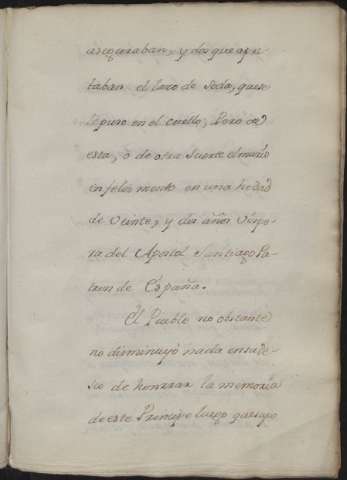 aseguraban, y dos que apre
taban el lazo de seda, que se
le puso en el cuello, Pero de
esta, ó de otra suerte el murió
infelizmente en una hedad
de veinte, y dos años Vispe
ra del Apostol Santiago Pa-
tron de España.
El Pueblo no obstante
no disminuyó nada en su de-
seo de honrrar la memoria
de este Principe luego que supo